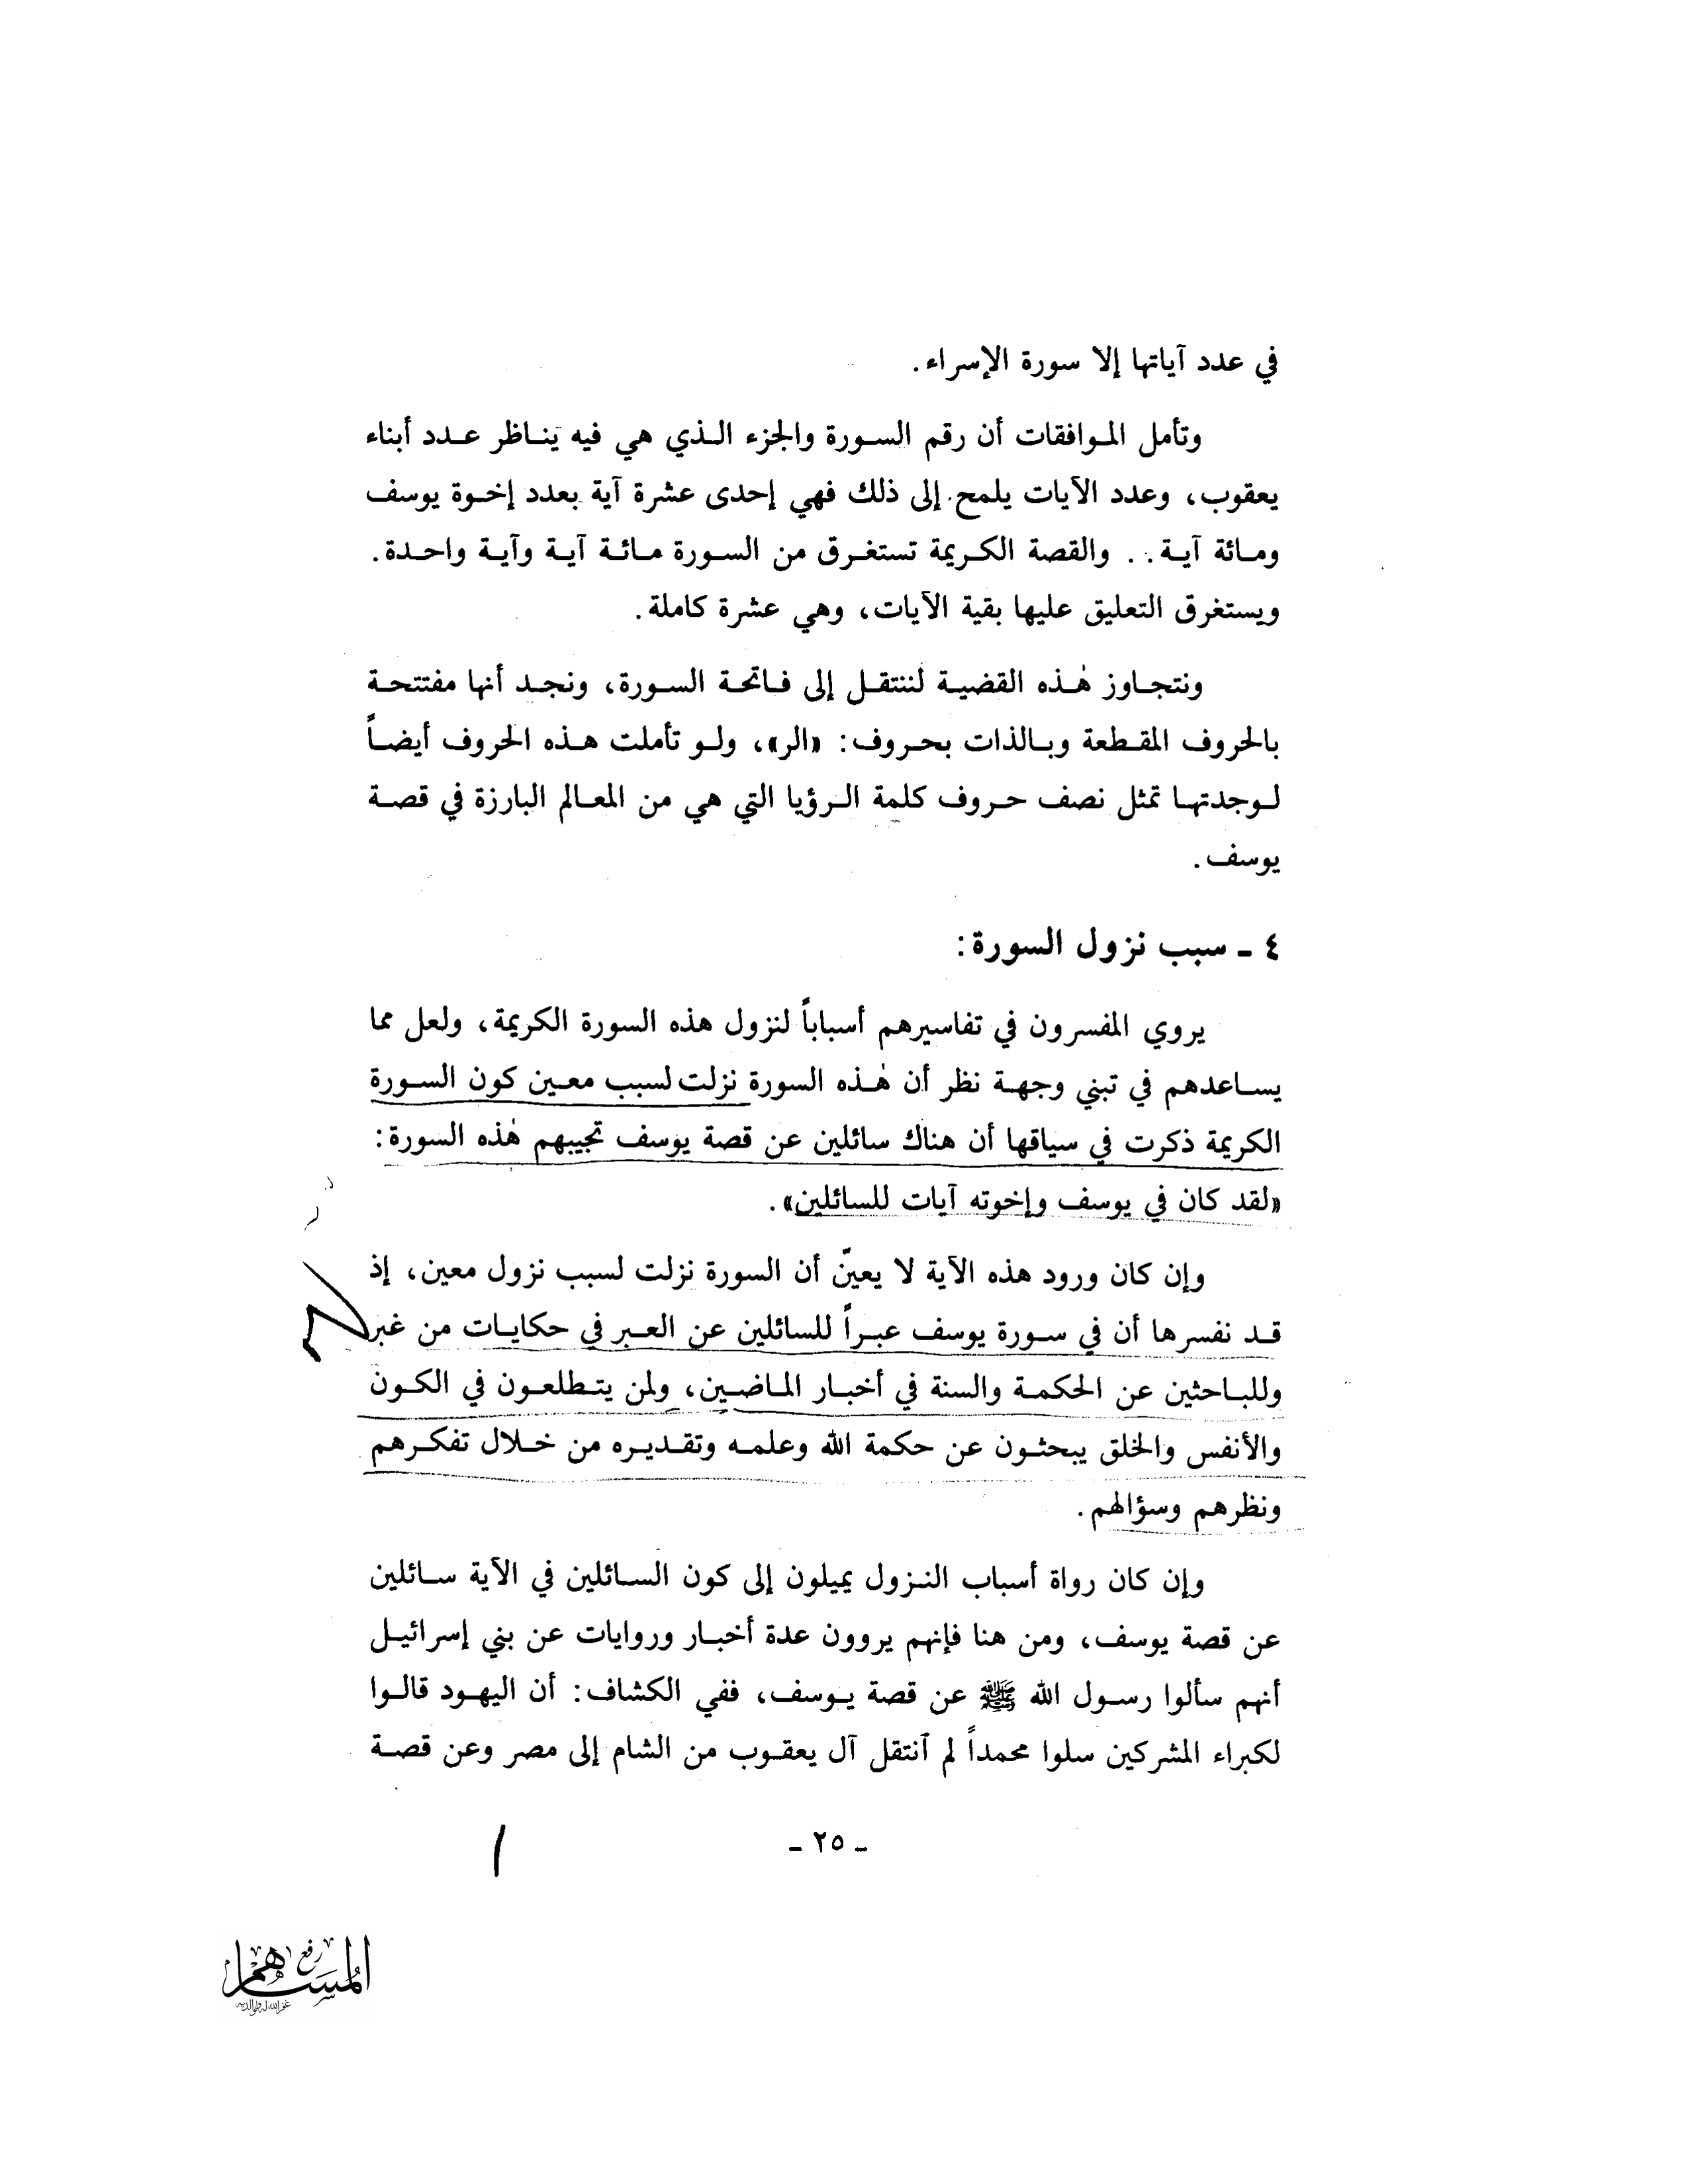 في عدد آياتها إلا سورة الإسراء.
وتأمل الموافقات أن رقم السورة والجزء الذي هي فيه يناظر عدد أبناء
يعقوب، وعدد الآيات يلمح إلى ذلك فهي إحدى عشرة آية بعدد إخوة يوسف
ومائة آية.. والقصة الكريمة تستغرق من السورة مائة آية وآية واحدة.
ويستغرق التعليق عليها بقية الآيات، وهي عشرة كاملة.
ونتجاوز هٰذه القضية لننتقل إلى فاتحة السورة، ونجد أنها مفتتحة
بالحروف المقطعة وبالذات بحروف: «الر»، ولو تأملت هذه الحروف أيضاً
لوجدتها تمثل نصف حروف كلمة الرؤيا التي هي من المعالم البارزة في قصة
يوسف.
٤ ـ سبب نزول السورة:
يروي المفسرون في تفاسيرهم أسباباً لنزول هذه السورة الكريمة، ولعل مما
يساعدهم في تبني وجهة نظر أن هٰذه السورة نزلت لسبب معين كون السورة
الكريمة ذكرت في سياقها أن هناك سائلين عن قصة يوسف تجيبهم هٰذه السورة:
«لقد كان في يوسف وإخوته آيات للسائلين».
وإن كان ورود هذه الآية لا يعينّ أن السورة نزلت لسبب نزول معين، إذ
قد نفسرها أن في سورة يوسف عبراً للسائلين عن العبر في حكايات من غبر
وللباحثين عن الحكمة والسنة في أخبار الماضين، ولمن يتطلعون في الكون
والأنفس والخلق يبحثون عن حكمة الله وعلمه وتقديره من خلال تفكرهم
ونظرهم وسؤالهم.
وإن كان رواة أسباب النزول يميلون إلى كون السائلين في الآية سائلين
عن قصة يوسف، ومن هنا فإنهم يروون عدة أخبار وروايات عن بني إسرائيل
أنهم سألوا رسول الله ﷺ عن قصة يوسف، ففي الكشاف: أن اليهود قالوا
لكبراء المشركين سلوا محمداً لم آنتقل آل يعقوب من الشام إلى مصر وعن قصة
ـ ٢٥ ـ
رفع
المساهم
غفر الله له ولوالديه